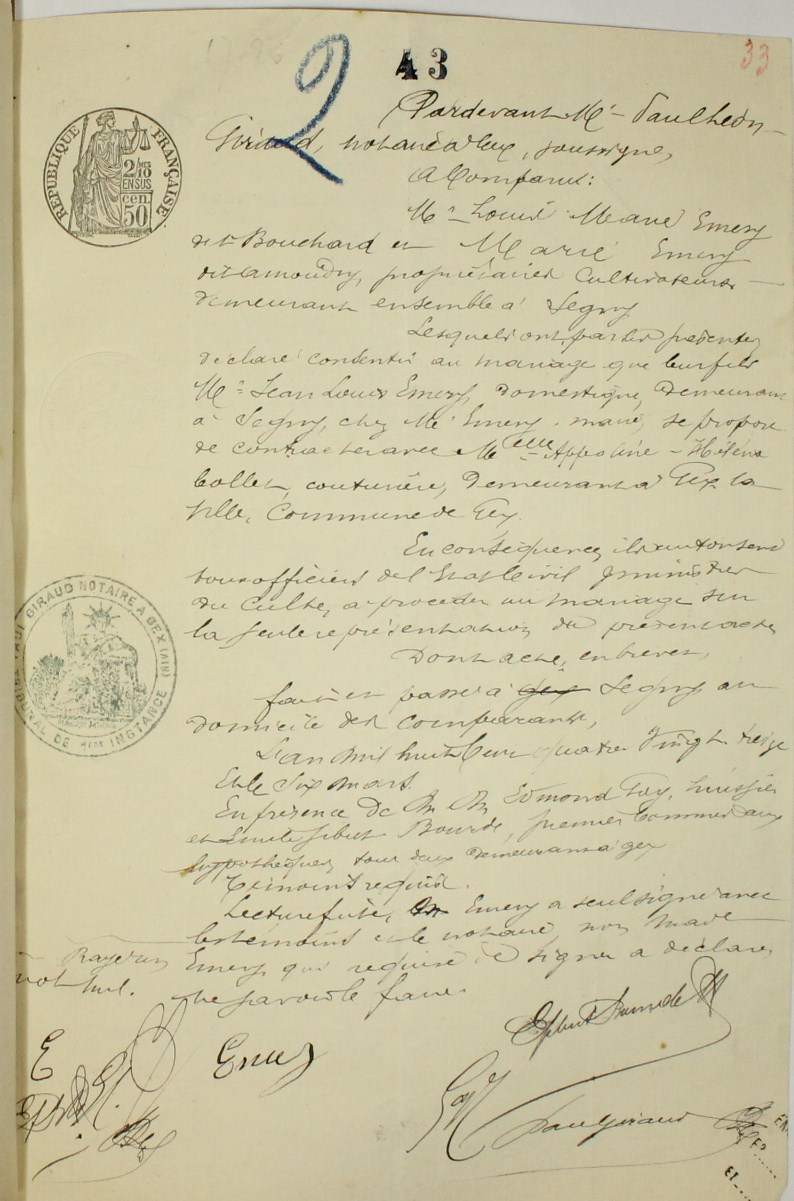 43
33
2
Pardevant Me Paul Léon
Giraud, notaire à Gex, soussigné,
A Comparu:
Mr Louis Marie Emery
dit Bouchard et Marie Emery
dit Lamoudry, propriétaires cultivateurs
demeurant ensemble à Segny
Lesquels ont par les présentes
déclaré consentir au mariage que leur fils
Mr Jean Louis Emery, domestique, demeurant
à Segny, chez Mr Emery, maire, se propose
de contracter avec Melle Appoline-Hélène
Collet, couturière, demeurant à Gex la
ville, Commune de Gex.
En conséquence, ils autorisent
tous officiers de l'Etat Civil & ministres
du Culte, à procéder au mariage sur
la seule représentation du présent acte
Dont acte, en brevet,
fait et passé à Gex Segny au
domicile des comparants,
L'an mil huit cent quatre vingt treize
Et le six mars.
En présence de M M Edmond Gay, huissier
et Emile Gibert Bourde, premier commis aux
hypothèques, tous deux demeurant à Gex
témoins requis.
Lecture faite, Emery a seul signé avec
les témoins et le notaire, non Marie
Emery qui requise de signer a déclaré
ne savoir le faire.
Rayé un
mot nul.
Emery
Paul Giraud
REPUBLIQUE FRANÇAISE
2/10MES
EN SUS
cen.
50
PAUL GIRAUD NOTAIRE A GEX (AIN)
TRIBUNAL DE 1ère INSTANCE